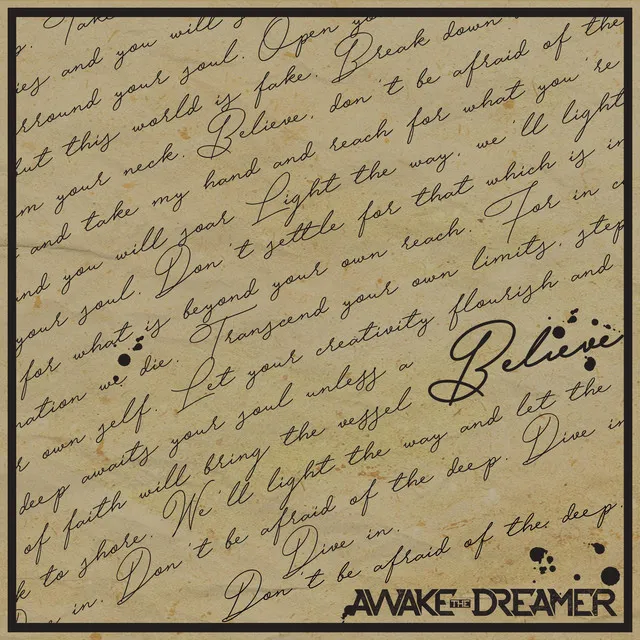 . Take
ies and you will
rround your soul. Open yo
but this world is fake. Break down
m your neck. Believe, don't be afraid of the
and take my hand and reach for what you're
and you will soar Light the way, we'll light
your soul. Don't settle for that which is in
for what is beyond your own reach. For in c
nation we die. Transcend your own limits, step
r own self. Let your creativity flourish and
deep awaits your soul unless a Believe
of faith will bring the vessel
k to shore. We'll light the way and let the
in. Don't be afraid of the deep. Dive in
Dive in.
Don't be afraid of the deep.
AWAKE THE DREAMER